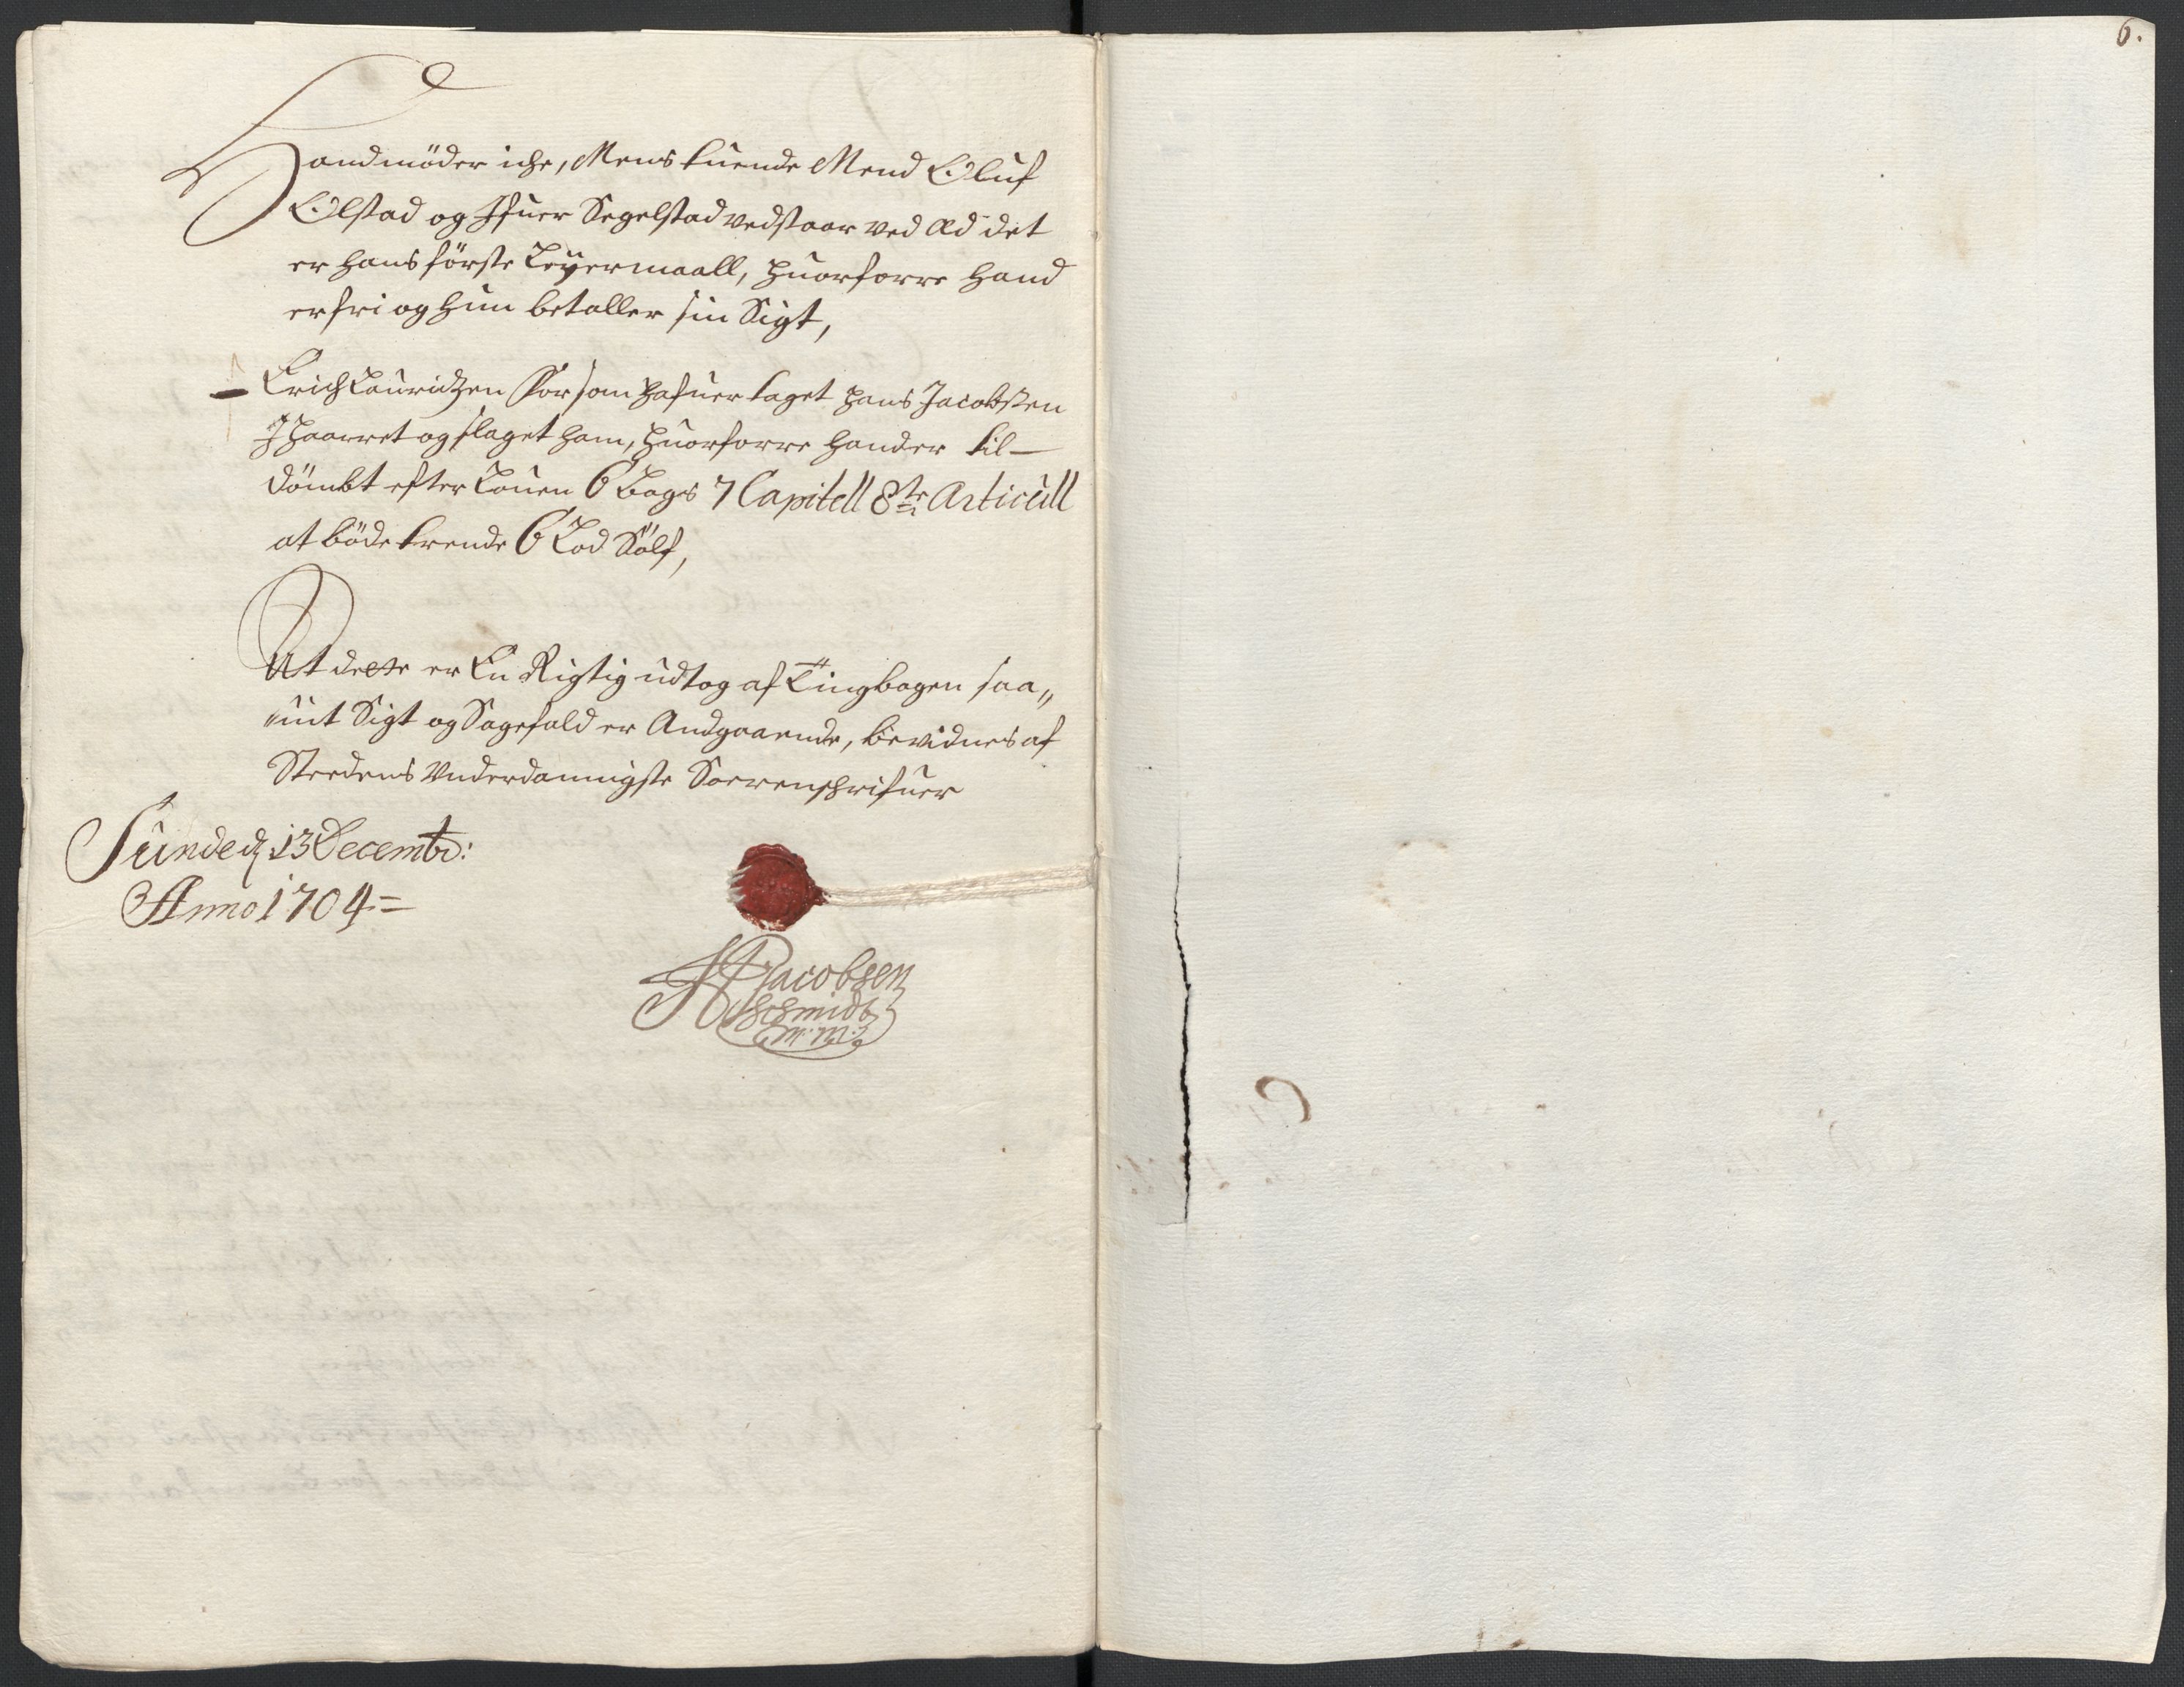 6.
Hand möder iche, Mens tuende Mend Oluf
Olstad og Ifuer Segelstad vedstaar ved æd det
er hans förste Leyermaall, huorforre hand
er fri og hun betaller sin Sigt,
Erich Lauridtzen for som hafuer taget hans Jacobsen
J haarret og slaget ham, huorforre hand er til-
dömbt efter Louen 6 bogs 7 Capitell 8te Articull
at böde trende 6 Lod Sölf,
At dette er En Rigtig udtog af Tingbogen saa„
uit Sigt og Sagefald er Andgaaende, bevidnes af
Stedens Underdannigste Sorrenschrifuer
Sunde d 13 Decembr:
Anno 1704=
HPJacobsen
Schmidt
m: m: